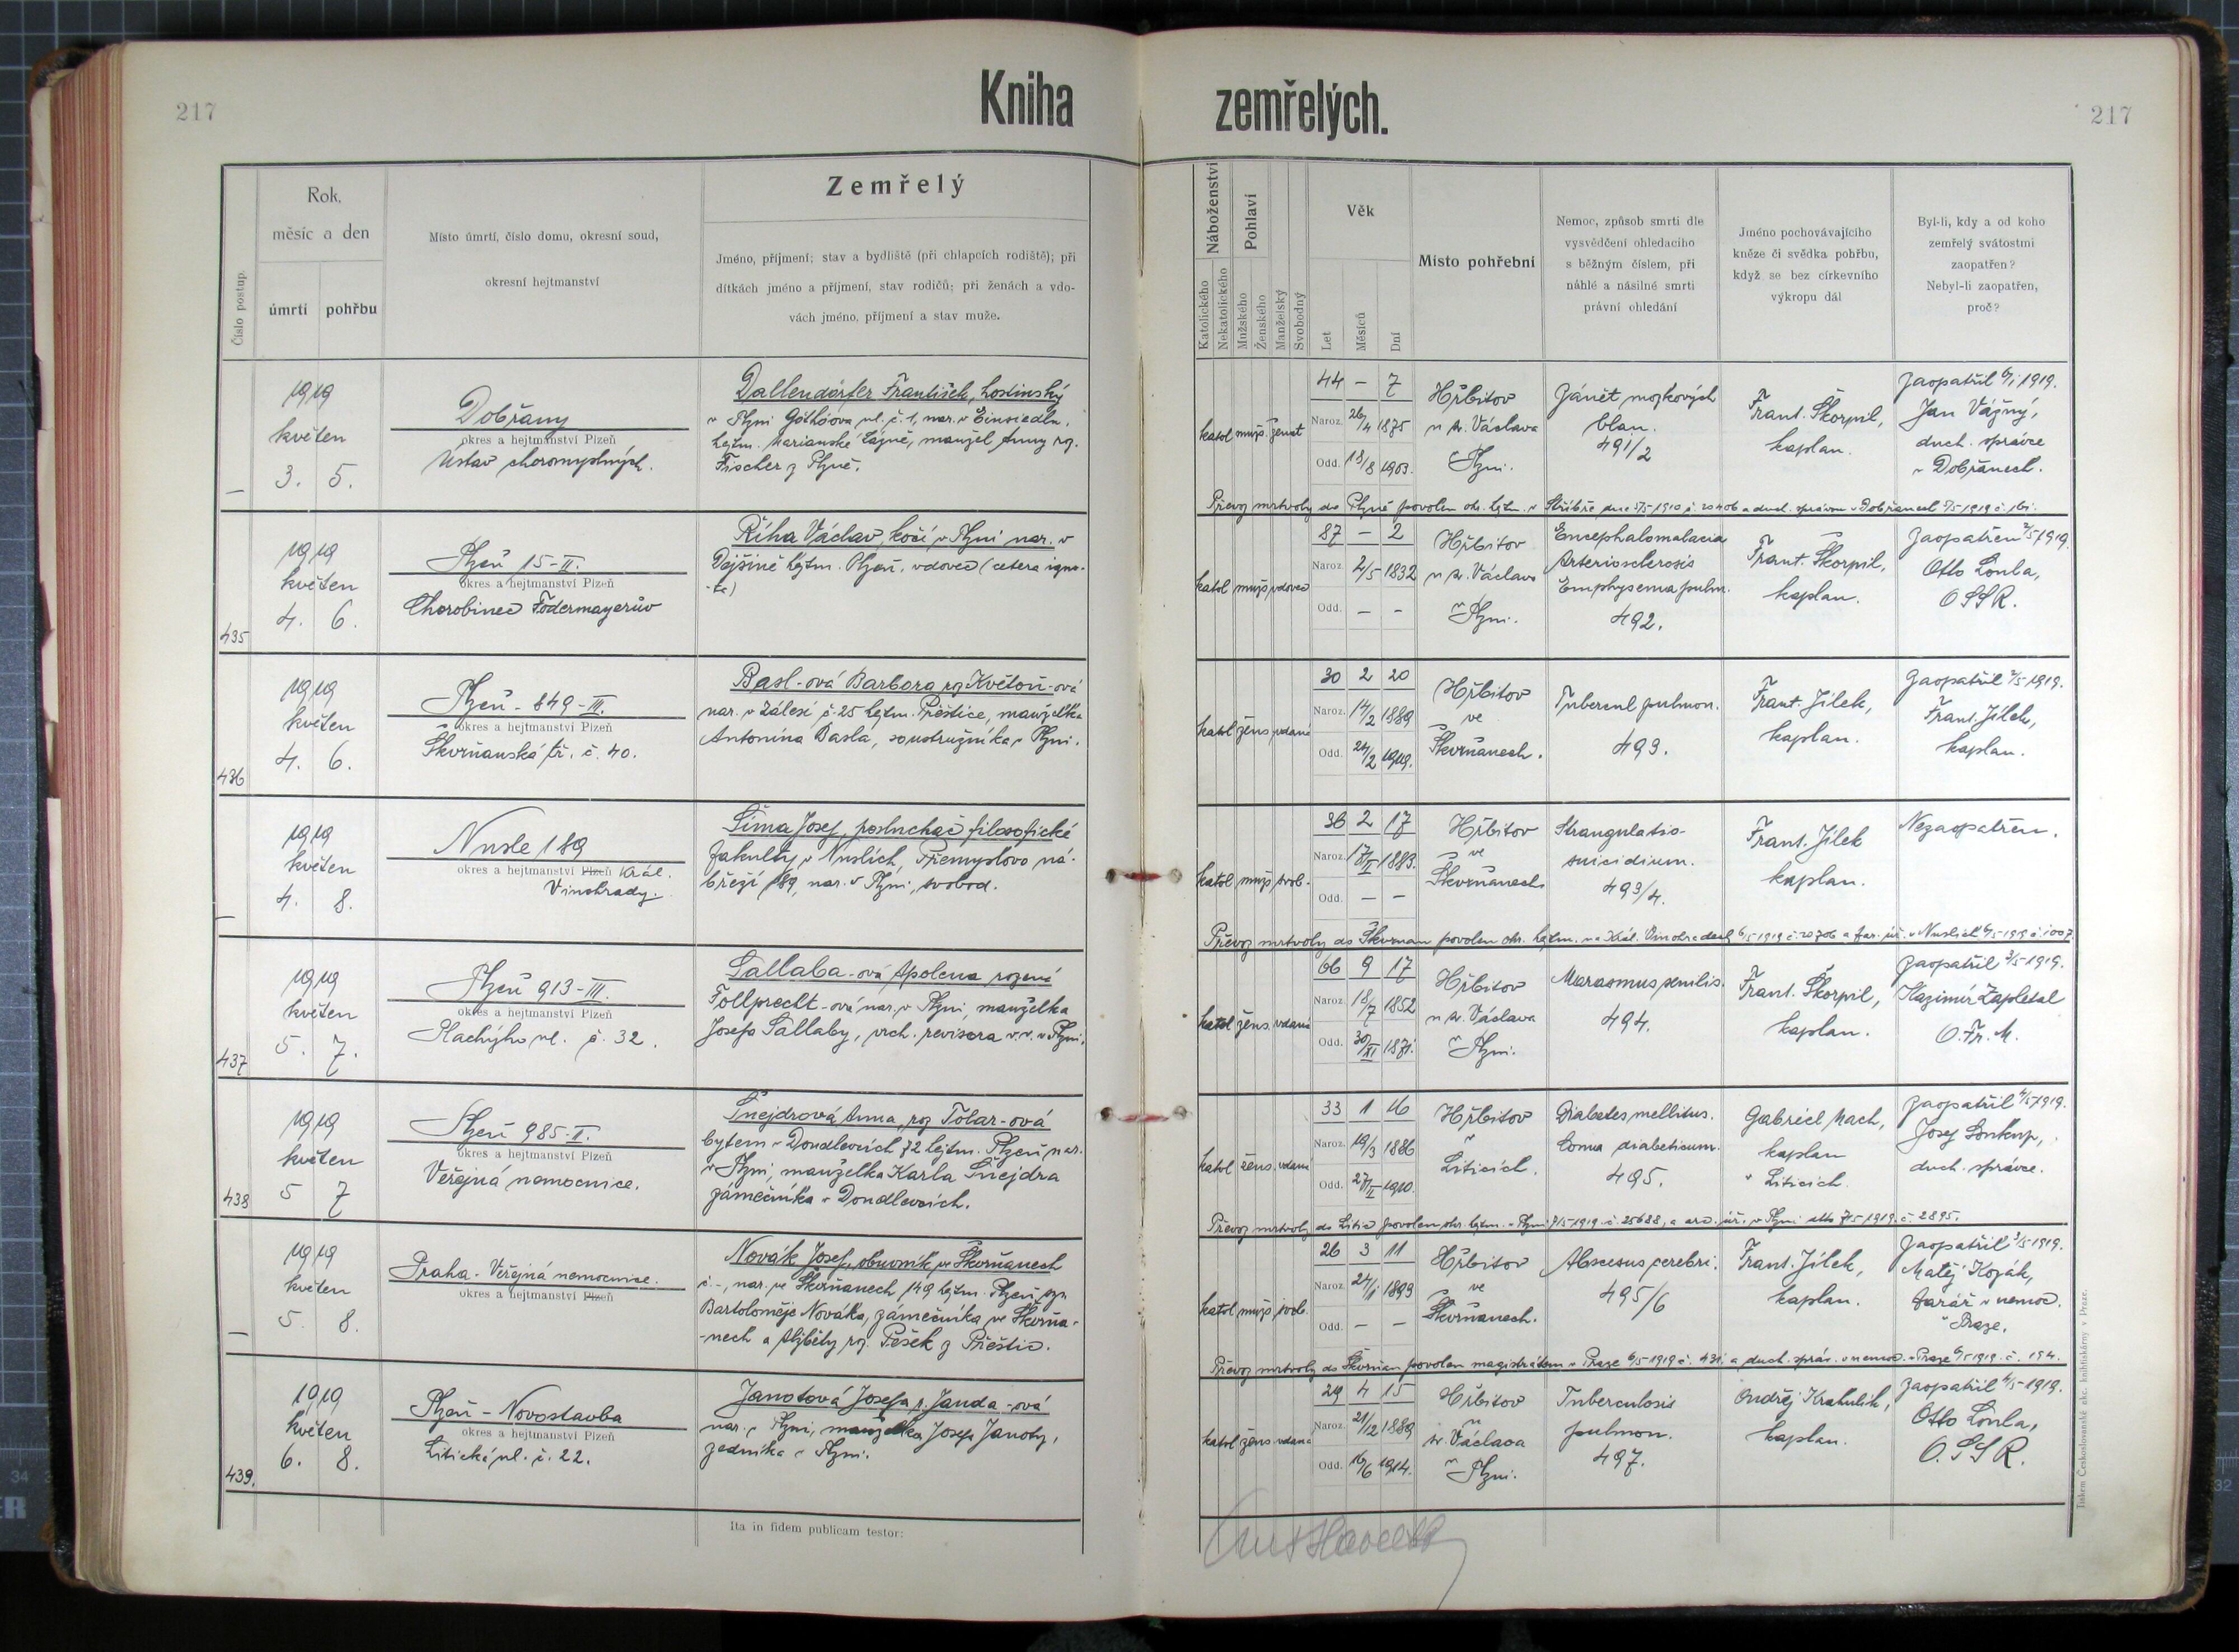 217
Kniha
zemřelých.
217
Číslo postup.
Rok,
měsíc a den
úmrtí
pohřbu
Místo úmrtí, číslo domu, okresní soud,
okresní hejtmanství
Zemřelý
Jméno, příjmení; stav a bydliště (při chlapcích rodiště); při
dítkách jméno a příjmení, stav rodičů; při ženách a vdo-
vách jméno, příjmení a stav muže.
Náboženství
Katolického
Nekatolického
Pohlaví
Mužského
Ženského
Manželský
Svobodný
Věk
Let
Měsíců
Dní
Místo pohřební
Nemoc, způsob smrti dle
vysvědčení ohledacího
s běžným číslem, při
náhlé a násilné smrti
právní ohledání
Jméno pochovávajícího
kněze či svědka pohřbu,
když se bez církevního
výkropu dál
Byl-li, kdy a od koho
zemřelý svátostmi
zaopatřen?
Nebyl-li zaopatřen,
proč?
—
1919
květen
3. 5.
Dobřany
okres a hejtmanství Plzeň
Ústav choromyslných.
Dallendörfer František, hostinský
v Plzni Göthöova ul. č. 1, nar. v Einsiedln,
hejtm. Marianské Lázně, manžel Anny roz.
Fischer z Plzně.
katol muž. ženat
44 — 7
Naroz. 26/4 1875
Odd. 18/8 1903.
Hřbitov
u sv. Václava
v Plzni.
Zánět mozkových
blan.
491/2
Frant. Škorpil,
kaplan.
Zaopatřil 6/1 1919.
Jan Vážný,
duch. správce
v Dobřanech.
Převoz mrtvoly do Plzně povolen okr. hejtm. v Stříbře
435
1919
květen
4. 6.
Plzeň 15-II.
okres a hejtmanství Plzeň
Chorobinec Fodermayerův
Říha Václav, kočí v Plzni nar. v
Dýšině hejtm. Plzeň, vdovec (cetera igno-
-ta)
katol muž vdovec
87 — 2
Naroz. 2/5 1832
Odd. — —
Hřbitov
u sv. Václava
v Plzni.
Encephalomalacia
Arteriosclerosis
Emphysema pulm.
492.
Frant. Škorpil,
kaplan.
Zaopatřen 2/5 1919.
Otto Loula,
O S S R.
436
1919
květen
4. 6.
Plzeň - 849-III.
okres a hejtmanství Plzeň
Škvrňanská tř. č. 40.
Basl-ová Barbora roz Květoň-ová
nar. v Zálesí č. 25 hejtm. Přeštice, manželka
Antonína Basla, soustružníka v Plzni.
katol žens. vdaná
30 2 20
Naroz. 14/2 1889
Odd. 24/2 1919.
Hřbitov
ve
Škvrňanech.
Tubercul pulmon.
493.
Frant. Jílek,
kaplan.
Zaopatřil 2/5 1919.
Frant. Jílek,
kaplan.
—
1919
květen
4. 8.
Nusle 189
okres a hejtmanství Plzeň Král.
Vinohrady.
Šíma Josef, posluchač filosofické
fakulty v Nuslích, Přemyslovo ná-
břeží 189, nar. v Plzni, svobod.
katol muž svob.
36 2 17
Naroz. 17/II 1883.
Odd. — —
Hřbitov
ve
Škvrňanech
Strangulatio-
suicidium.
493/4.
Frant. Jílek
kaplan.
Nezaopatřen.
Převoz mrtvoly do Škvrňan povolen okr. hejtm. na Král. Vinohradech 6/5 1919 č. 20706 a far. úř. v Nuslích 6/5 1919 č. 1007.
437
1919
květen
5. 7.
Plzeň 913-III.
okres a hejtmanství Plzeň
Plachýho ul. č. 32.
Sallaba-ová Apolena rozená
Follprecht-ová nar. v Plzni, manželka
Josefa Sallaby, vrch. revisora v. v. v Plzni.
katol žens. vdaná
66 9 17
Naroz. 18/7 1852
Odd. 30/XI 1871.
Hřbitov
u sv. Václava
v Plzni.
Marasmus senilis.
494.
Frant. Škorpil,
kaplan.
Zaopatřil 3/5 1919.
Kazimír Zapletal
O. Fr. M.
438
1919
květen
5 7
Plzeň 985-II.
okres a hejtmanství Plzeň
Veřejná nemocnice.
Šnejdrová Anna, roz Tolar-ová
bytem v Doudlevcích 72 hejtm. Plzeň nar.
v Plzni, manželka Karla Šnejdra
zámečníka v Doudlevcích.
katol žens. vdaná
33 1 16
Naroz. 19/3 1886
Odd. 27/II 1910.
Hřbitov
v
Liticích.
Diabetes mellitus.
Coma diabeticum.
495.
Gabriel Mach,
kaplan
v Liticích.
Zaopatřil 4/5 1919.
Josef Soukup,
duch. správce.
Převoz mrtvoly do Litic povolen okr. hejtm. v Plzni 7/5 1919 č. 25688, a arc. úř. v Plzni dto 7/5 1919. č. 2895.
—
1919
květen
5. 8.
Praha - Veřejná nemocnice.
okres a hejtmanství Plzeň
Novák Josef, obuvník ve Škvrňanech
č -, nar. ve Škvrňanech 149 hejtm. Plzeň, syn
Bartoloměje Nováka, zámečníka ve Škvrňa-
-nech a Alžběty roz. Pešek z Přeštic.
katol muž svob.
26 3 11
Naroz. 24/1 1893
Odd. — —
Hřbitov
ve
Škvrňanech.
Abscesus cerebri.
495/6
Frant. Jílek,
kaplan.
Zaopatřil 3/5 1919.
Matěj Kozák,
farář v nemoc.
v Praze.
Převoz mrtvoly do Škvrňan povolen magistrátem v Praze 6/5 1919 č. 431. a duch. správ. v nemoc. v Praze 6/5 1919. č. 194.
439.
1919
květen
6. 8.
Plzeň - Novostavba
okres a hejtmanství Plzeň
Litická ul. č. 22.
Janotová Josefa r. Janda-ová
nar. v Plzni, manželka Josefa Janoty,
zedníka v Plzni.
katol žens vdaná
29 4 15
Naroz. 21/12 1889
Odd. 16/6 1914.
Hřbitov
u
sv. Václava
v Plzni.
Tuberculosis
pulmon.
497.
Ondřej Krahulík,
kaplan.
Zaopatřil 4/5 1919.
Otto Loula,
O. S S R.
Ita in fidem publicam testor:
Tiskem Československé akc. knihtiskárny v Praze.
34
32